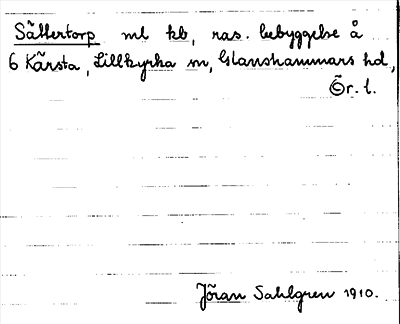 Sättertorp ml kb, ras. bebyggelse å
6 Kärsta, Lillkyrka sn, Glanshammars hd,
Ör. l.
Jöran Sahlgren 1910.